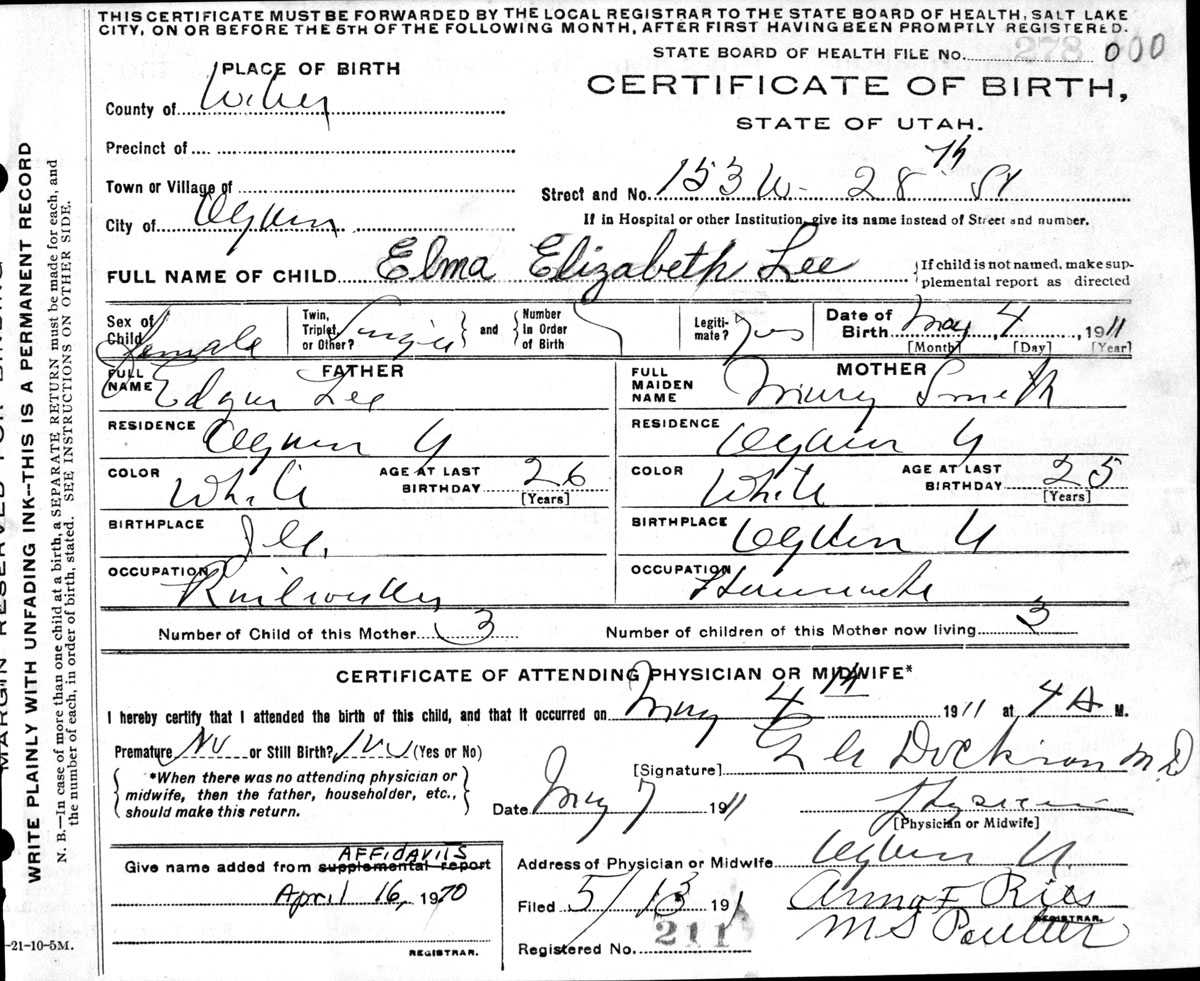 THIS CERTIFICATE MUST BE FORWARDED BY THE LOCAL REGISTRAR TO THE STATE BOARD OF HEALTH, SALT LAKE
CITY, ON OR BEFORE THE 5TH OF THE FOLLOWING MONTH, AFTER FIRST HAVING BEEN PROMPTLY REGISTERED.
STATE BOARD OF HEALTH FILE No. 278 000
PLACE OF BIRTH
CERTIFICATE OF BIRTH,
STATE OF UTAH.
County of Weber
Precinct of
Town or Village of
Street and No. 153 W- 28 th St
City of Ogden
If in Hospital or other Institution, give its name instead of Street and number.
FULL NAME OF CHILD Elma Elizabeth Lee
If child is not named, make sup-
plemental report as directed
Sex of Child Female
Twin, Triplet, or Other? Single
and
Number In Order of Birth
Legiti-mate? Yes
Date of Birth May 4, 1911
[Month] [Day] [Year]
FATHER
FULL NAME Edgar Lee
RESIDENCE Ogden U
COLOR White
AGE AT LAST BIRTHDAY 26
[Years]
BIRTHPLACE Ill.
OCCUPATION
MOTHER
FULL MAIDEN NAME Mary Smith
RESIDENCE Ogden U
COLOR White
AGE AT LAST BIRTHDAY 25
[Years]
BIRTHPLACE Ogden U
OCCUPATION Housewife
Number of Child of this Mother 3
Number of children of this Mother now living 3
CERTIFICATE OF ATTENDING PHYSICIAN OR MIDWIFE*
I hereby certify that I attended the birth of this child, and that it occurred on May 4th 1911 at 4 A M.
Premature No or Still Birth? No (Yes or No)
[Signature] M.D
*When there was no attending physician or
midwife, then the father, householder, etc.,
should make this return.
Date May 7 1911
Physician
[Physician or Midwife]
Give name added from supplemental report AFFIDAVITS
April 16, 1970
REGISTRAR.
Address of Physician or Midwife Ogden U.
Filed 5/13 191
Anna F Ries
REGISTRAR.
M S Poulter
Registered No. 211
-21-10-5M.
MARGIN RESERVED FOR BINDING
WRITE PLAINLY WITH UNFADING INK--THIS IS A PERMANENT RECORD
N. B.—In case of more than one child at a birth, a SEPARATE RETURN must be made for each, and
the number of each, in order of birth, stated. SEE INSTRUCTIONS ON OTHER SIDE.